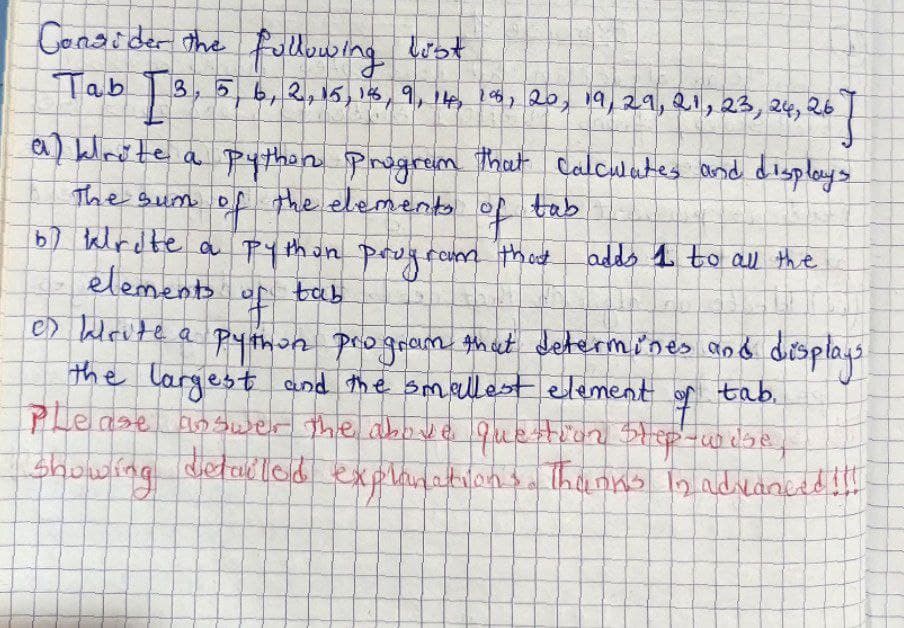 Consider the following list
Tab [3, 5, 6, 2, 15, 18, 9, 14, 18, 20, 19, 29, 21, 23, 24, 26]
a) Write a python program that calculates and displays
The sum of the elements of tab
b) Write a python program that adds 1 to all the
elements of tab
c) Write a python program that determines and displays
the largest and the smallest element of tab.
PLease answer the above question step-wise,
showing detailed explanations. Thanks In advanced!!!